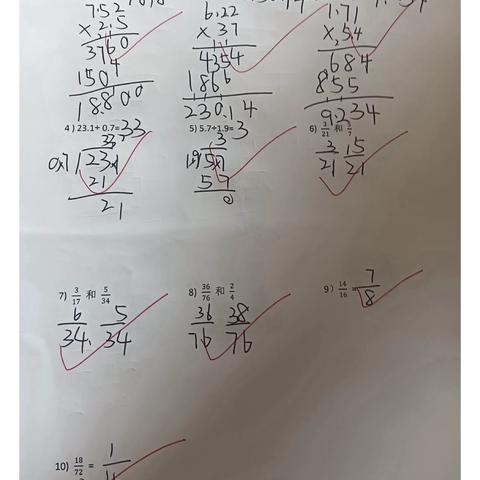 7.52 6.22 1.71
× 2.5 × 37 × 5.4
3760 4354 684
1504 1866 855
18.800 230.14 9.234
4) 23.1÷0.7=33 5) 5.7÷1.9=3 6) 3/21 和 5/7
33 3 3/21 15/21
0.7 23.1 1.9 5.7
21 57
21 0
7) 3/17 和 5/34 8) 36/76 和 2/4 9) 14/16 = 7/8
6/34 5/34 36/76 38/76
10) 18/72 = 1/4